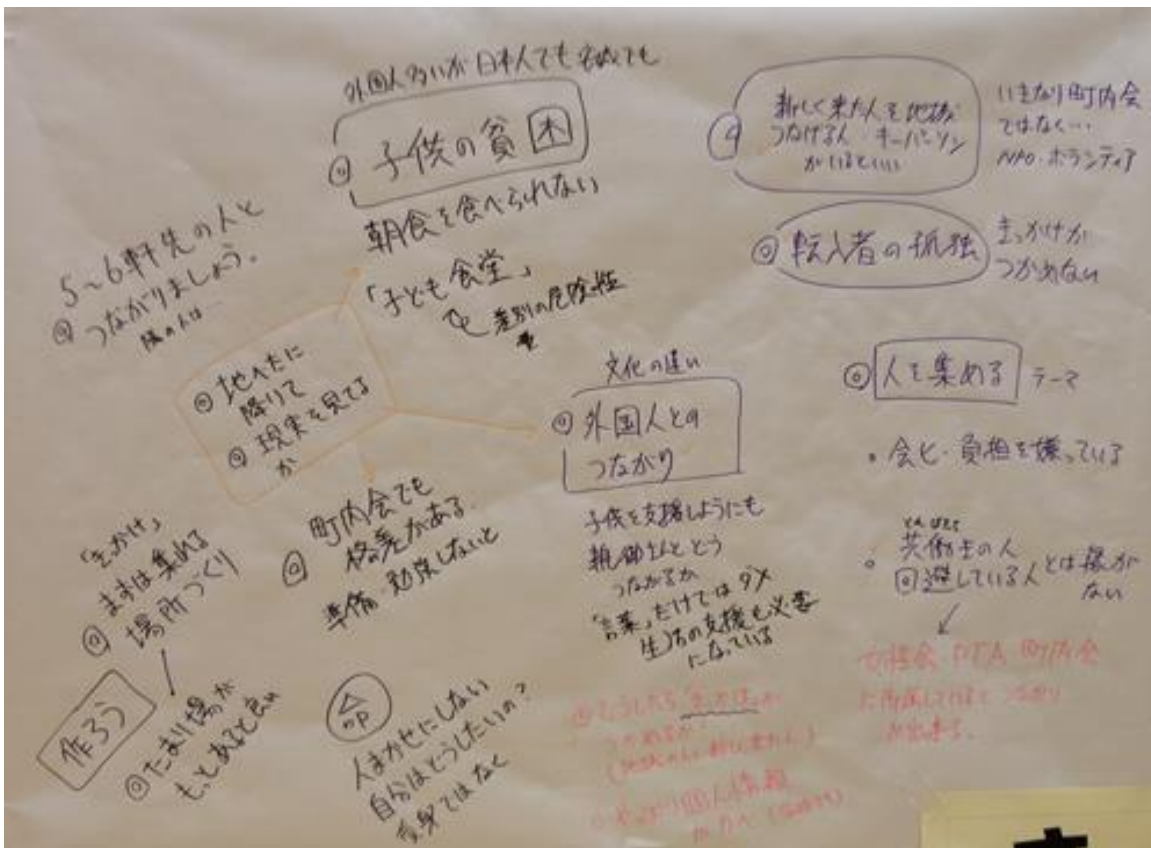 外国人多いが日本人でも名城でも
◎ 子供の貧困
朝食を食べられない
「子ども食堂」
差別の危険性
5~6軒先の人と
◎ つながりましょう。
隣の人は…
◎ 地べたに
降りて
◎ 現実を見てる
か
◎ 町内会でも
格差がある。
準備・勉強しないと
「きっかけ」
まずは集れる
◎ 場所づくり
作ろう
◎ たまり場が
もっとあると良い
人まかせにしない
自分はどうしたいの?
受身ではなく
文化の違い
◎ 外国人との
つながり
子供を支援しようにも
親御さんとどう
つながるか
「言葉」だけではダメ
生活の支援も必要
になっている
◎ どうしたら「きっかけ」が
つかめるか?
個人情報
新しく来た人を地域に
つなげる人 キーパーソン
がいるといい
いきなり町内会
ではなく…
NPO・ボランティア
◎ 転入者の孤独
きっかけが
つかめない
◎ 人を集める テーマ
・会とか 負担を嫌っている
共働きの人
回避している人とは縁が
ない
女性会 PTA 町内会
に所属していると つながり
が出来る。